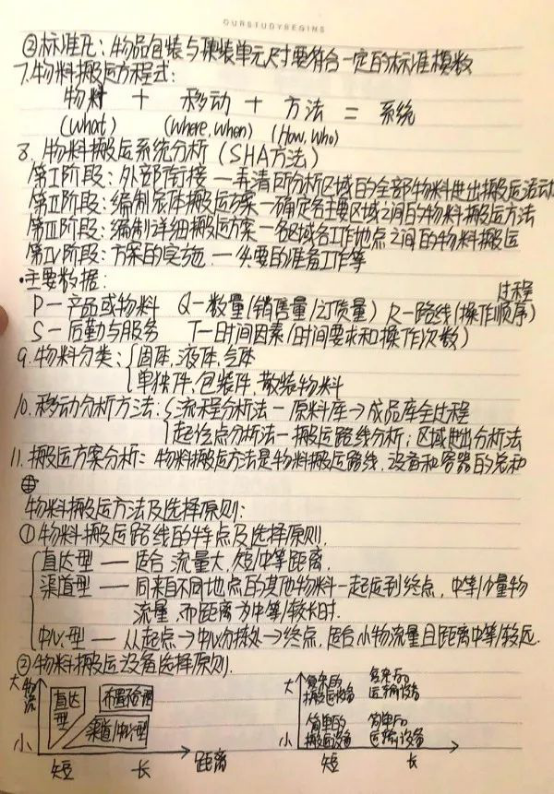 OURSTUDYBEGINS
③标准化:物品包装与集装单元尺寸要符合一定的标准模数
7.物料搬运方程式:
物料 + 移动 + 方法 = 系统
(What) (Where,When) (How,Who)
8.物料搬运系统分析(SHA方法)
第Ⅰ阶段:外部衔接—弄清所分析区域的全部物料进出搬运活动
第Ⅱ阶段:编制总体搬运方案—确定各主要区域之间的物料搬运方法
第Ⅲ阶段:编制详细搬运方案—各区域各工作地点之间的物料搬运
第Ⅳ阶段:方案的实施—必要的准备工作等
·主要数据:
P—产品或物料 Q—数量(销售量/订货量) R—路线(操作顺序) 过程
S—后勤与服务 T—时间因素(时间要求和操作次数)
9.物料分类:{固体、液体、气体
单独件、包装件、散装物料
10.移动分析方法:{流程分析法—原料库→成品库全过程
起讫点分析法—搬运路线分析;区域进出分析法
11.搬运方案分析:物料搬运方法是物料搬运路线、设备和容器的总和
物料搬运方法及选择原则:
①物料搬运路线的特点及选择原则.
直达型——适合流量大,短/中等距离.
渠道型——同来自不同地点的其他物料一起运到终点,中等/少量物
流量,而距离为中等/较长时.
中心型——从起点→中心分拣处→终点,适合小物流量且距离中等/较远.
②物料搬运设备选择原则.
大 物流 直达型 布置不合理 大 复杂的搬运设备 复杂的运输设备
小 渠道/中心型 小 简单的搬运设备 简单的运输设备
短 长 距离 短 长